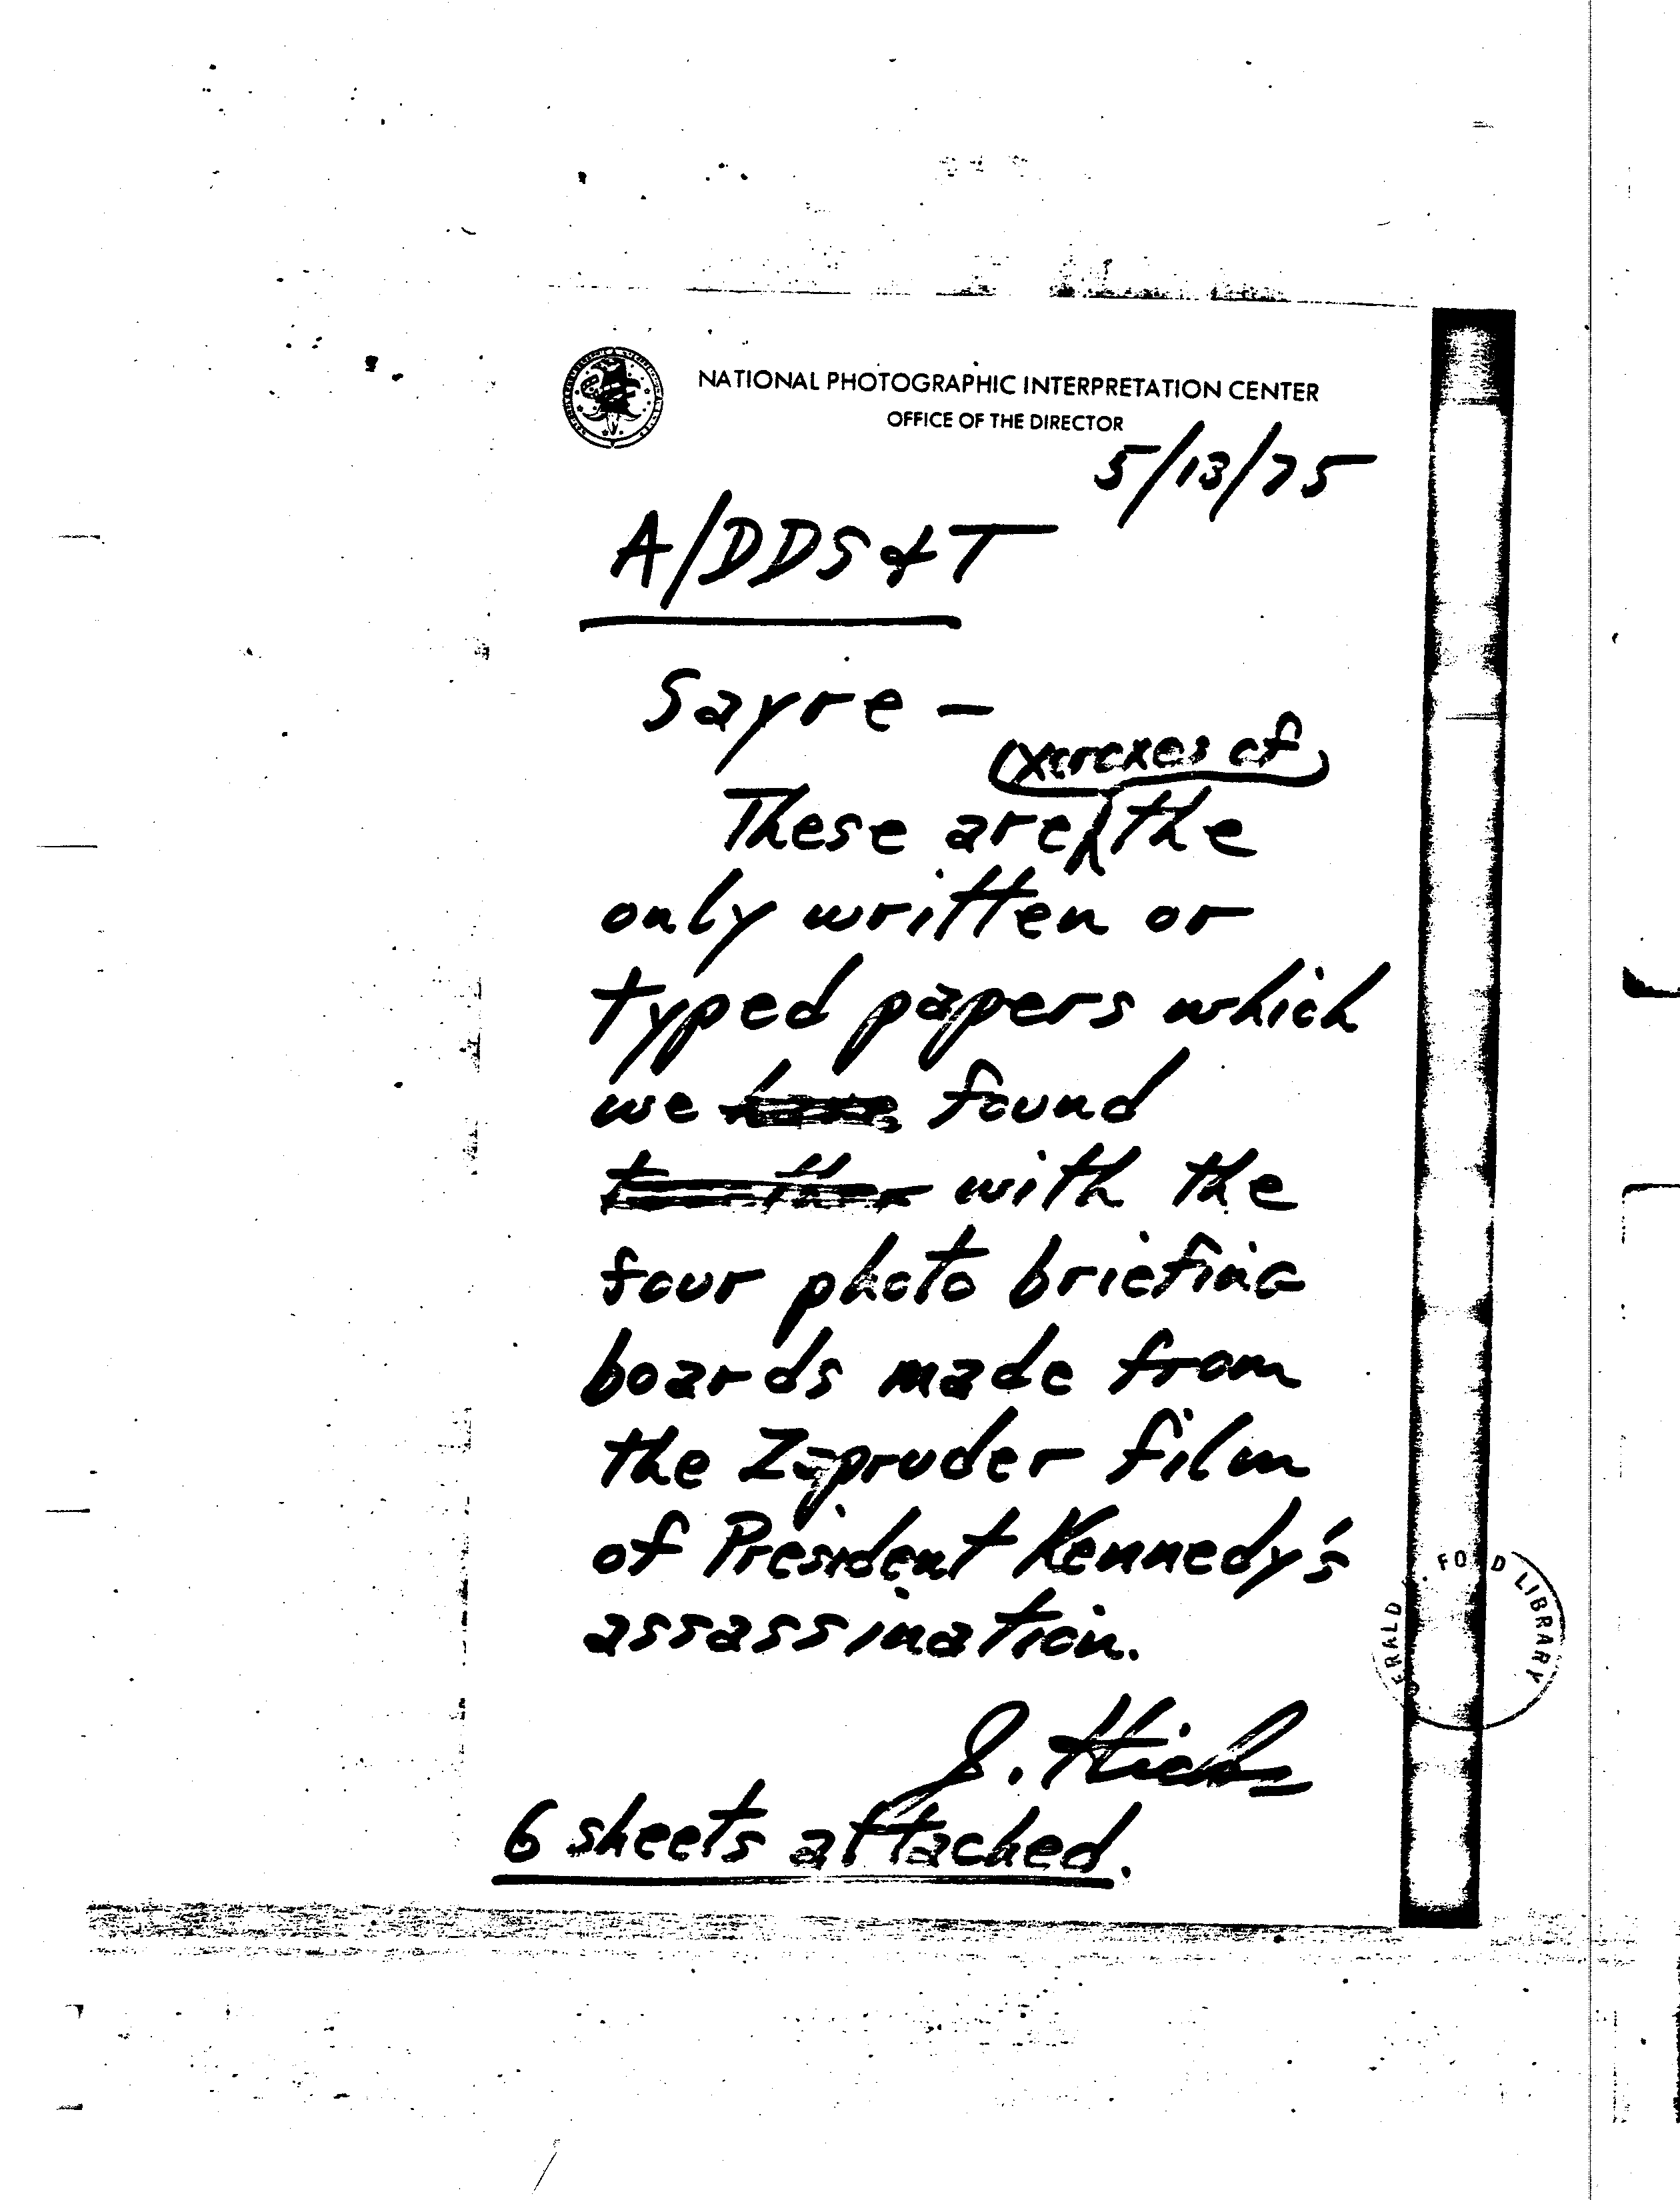 NATIONAL PHOTOGRAPHIC INTERPRETATION CENTER
OFFICE OF THE DIRECTOR
5/13/75
A/DDS&T
Sayre -
(xeroxes of)
These are the
only written or
typed papers which
we have found
with the
four photo briefing
boards made from
the Zapruder film
of President Kennedy's
assassination.
J. Hicks
6 sheets attached.
ERALD FORD LIBRARY